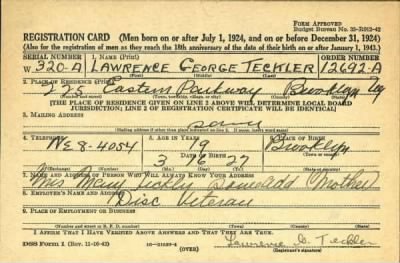 FORM APPROVED
Budget Bureau No. 33-R012-42
REGISTRATION CARD (Men born on or after July 1, 1924, and on or before December 31, 1924)
(Also for the registration of men as they reach the 18th anniversary of the date of their birth on or after January 1, 1943.)
SERIAL NUMBER 1. NAME (Print) ORDER NUMBER
W 320-A LAWRENCE GEORGE TECKLER 12692-A
(First) (Middle) (Last)
2. PLACE OF RESIDENCE (Print)
225 Eastern Parkway Brooklyn
[THE PLACE OF RESIDENCE GIVEN ON LINE 2 ABOVE WILL DETERMINE LOCAL BOARD
JURISDICTION; LINE 2 OF REGISTRATION CERTIFICATE WILL BE IDENTICAL]
3. MAILING ADDRESS
Same
[Mailing address if other than place indicated on line 2. If same, insert word same]
4. TELEPHONE 5. AGE IN YEARS 6. PLACE OF BIRTH
NE 8-4054 19 Brooklyn
DATE OF BIRTH (Town or county)
3 16 27
(Exchange) (Number) (Mo.) (Day) (Yr.) (State or country)
7. NAME AND ADDRESS OF PERSON WHO WILL ALWAYS KNOW YOUR ADDRESS
Mrs Mary Mother
8. EMPLOYER'S NAME AND ADDRESS
Disc Veteran
9. PLACE OF EMPLOYMENT OR BUSINESS
(Number and street or R. F. D. number) (Town) (County) (State)
I AFFIRM THAT I HAVE VERIFIED ABOVE ANSWERS AND THAT THEY ARE TRUE.
DSS Form 1 (Rev. 11-16-42) (OVER) Lawrence G. Teckler
(Registrant's signature)